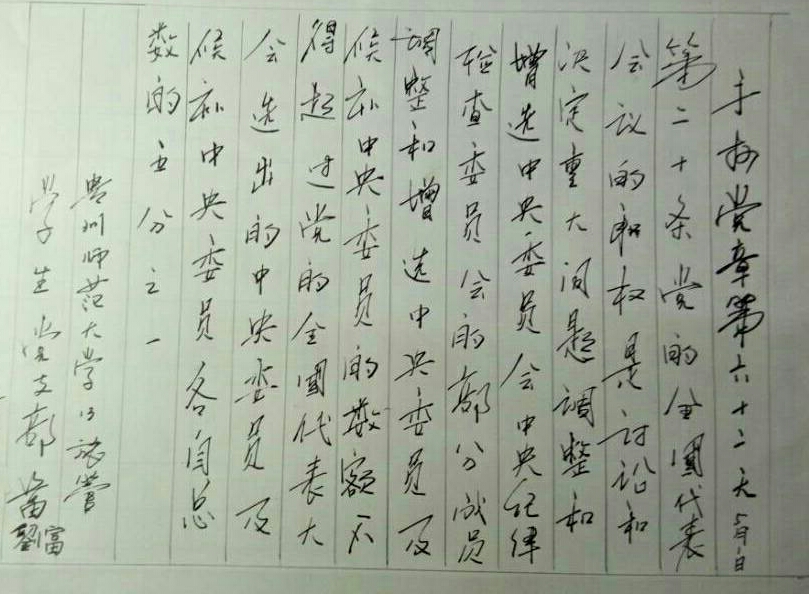 手抄党章第六十二天5月1日
第二十条党的全國代表
会议的职权是讨论和
决定重大问题调整和
增选中央委员会中央纪律
检查委员会的部分成员
调整和增选中央委员及
候补中央委员的数额不
得超过党的全國代表大
会选出的中央委员及
候补中央委员各自总
数的五分之一
贵州师范大学
学生党支部